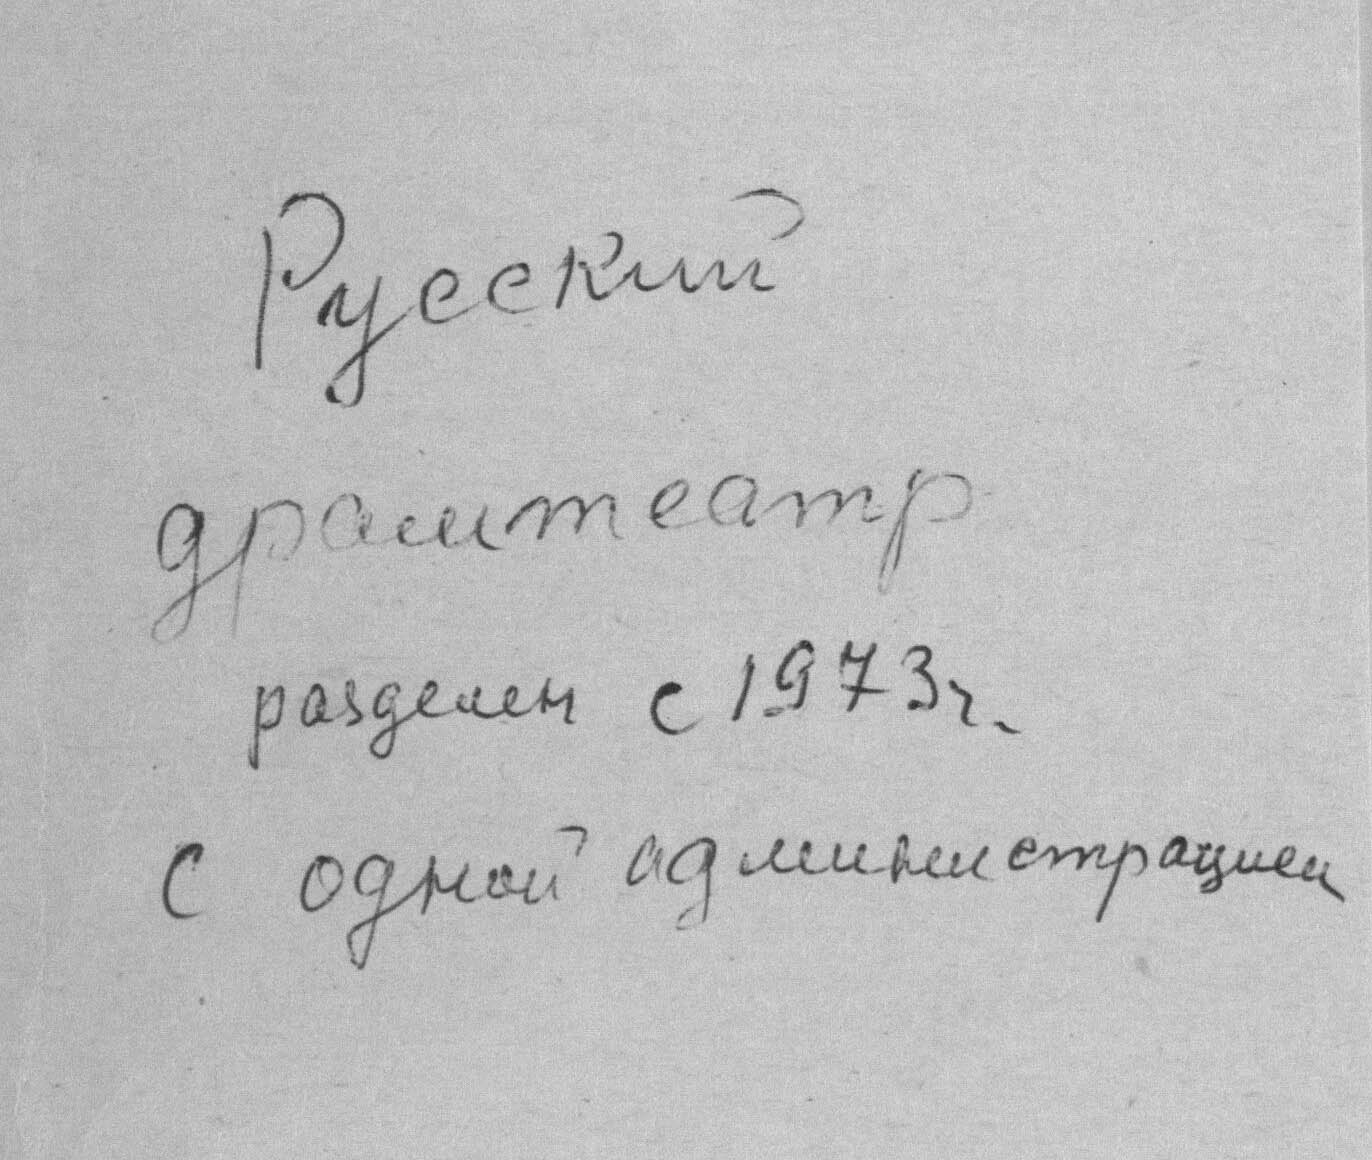 Русский
драмтеатр
разделен с 1973г.
с одной администрацией